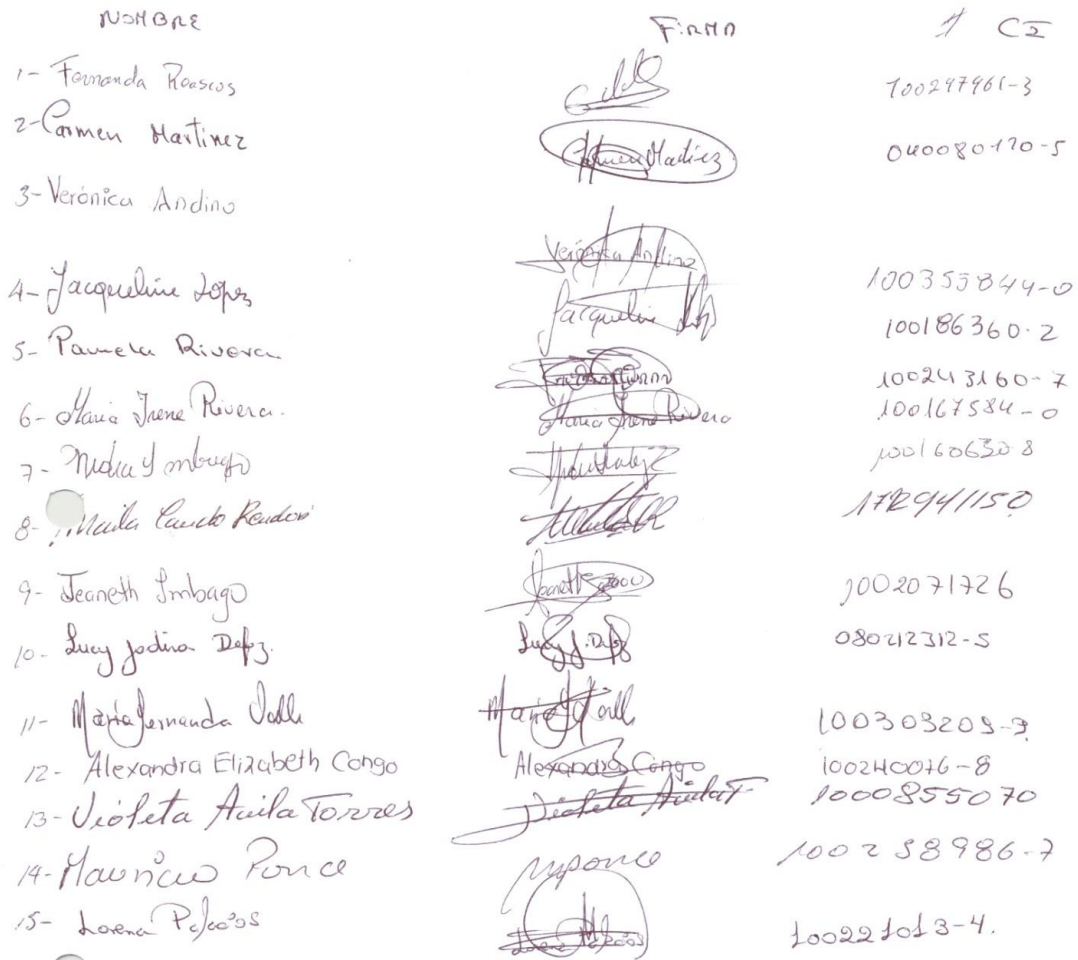 NOMBRE FIRMA # CI
1- Fernanda Rosscos 100297961-3
2- Carmen Martinez Carmen Martinez 040080170-5
3- Verónica Andino Verónica Andino 100355844-0
4- Jacqueline López Jacqueline López 100186360-2
5- Pamela Rivera 100243160-7
6- María Irene Rivera. María Irene Rivera 100167584-0
7- Nidia Y Imbago 100160630 8
8- Cando Rendón 1729411150
9- Jeaneth Imbago Jeaneth 1002071726
10- Lucy Jadira Defz. Lucy J. Defz 080212312-5
11- María Fernanda Valle María F Valle 100303209-9
12- Alexandra Elizabeth Congo Alexandra Congo 100240076-8
13- Violeta Avila Torres Violeta Avila T 1000855070
14- Mauricio Ponce mponce 100238986-7
15- Lorena Palacios Lorena Palacios 100221013-4.